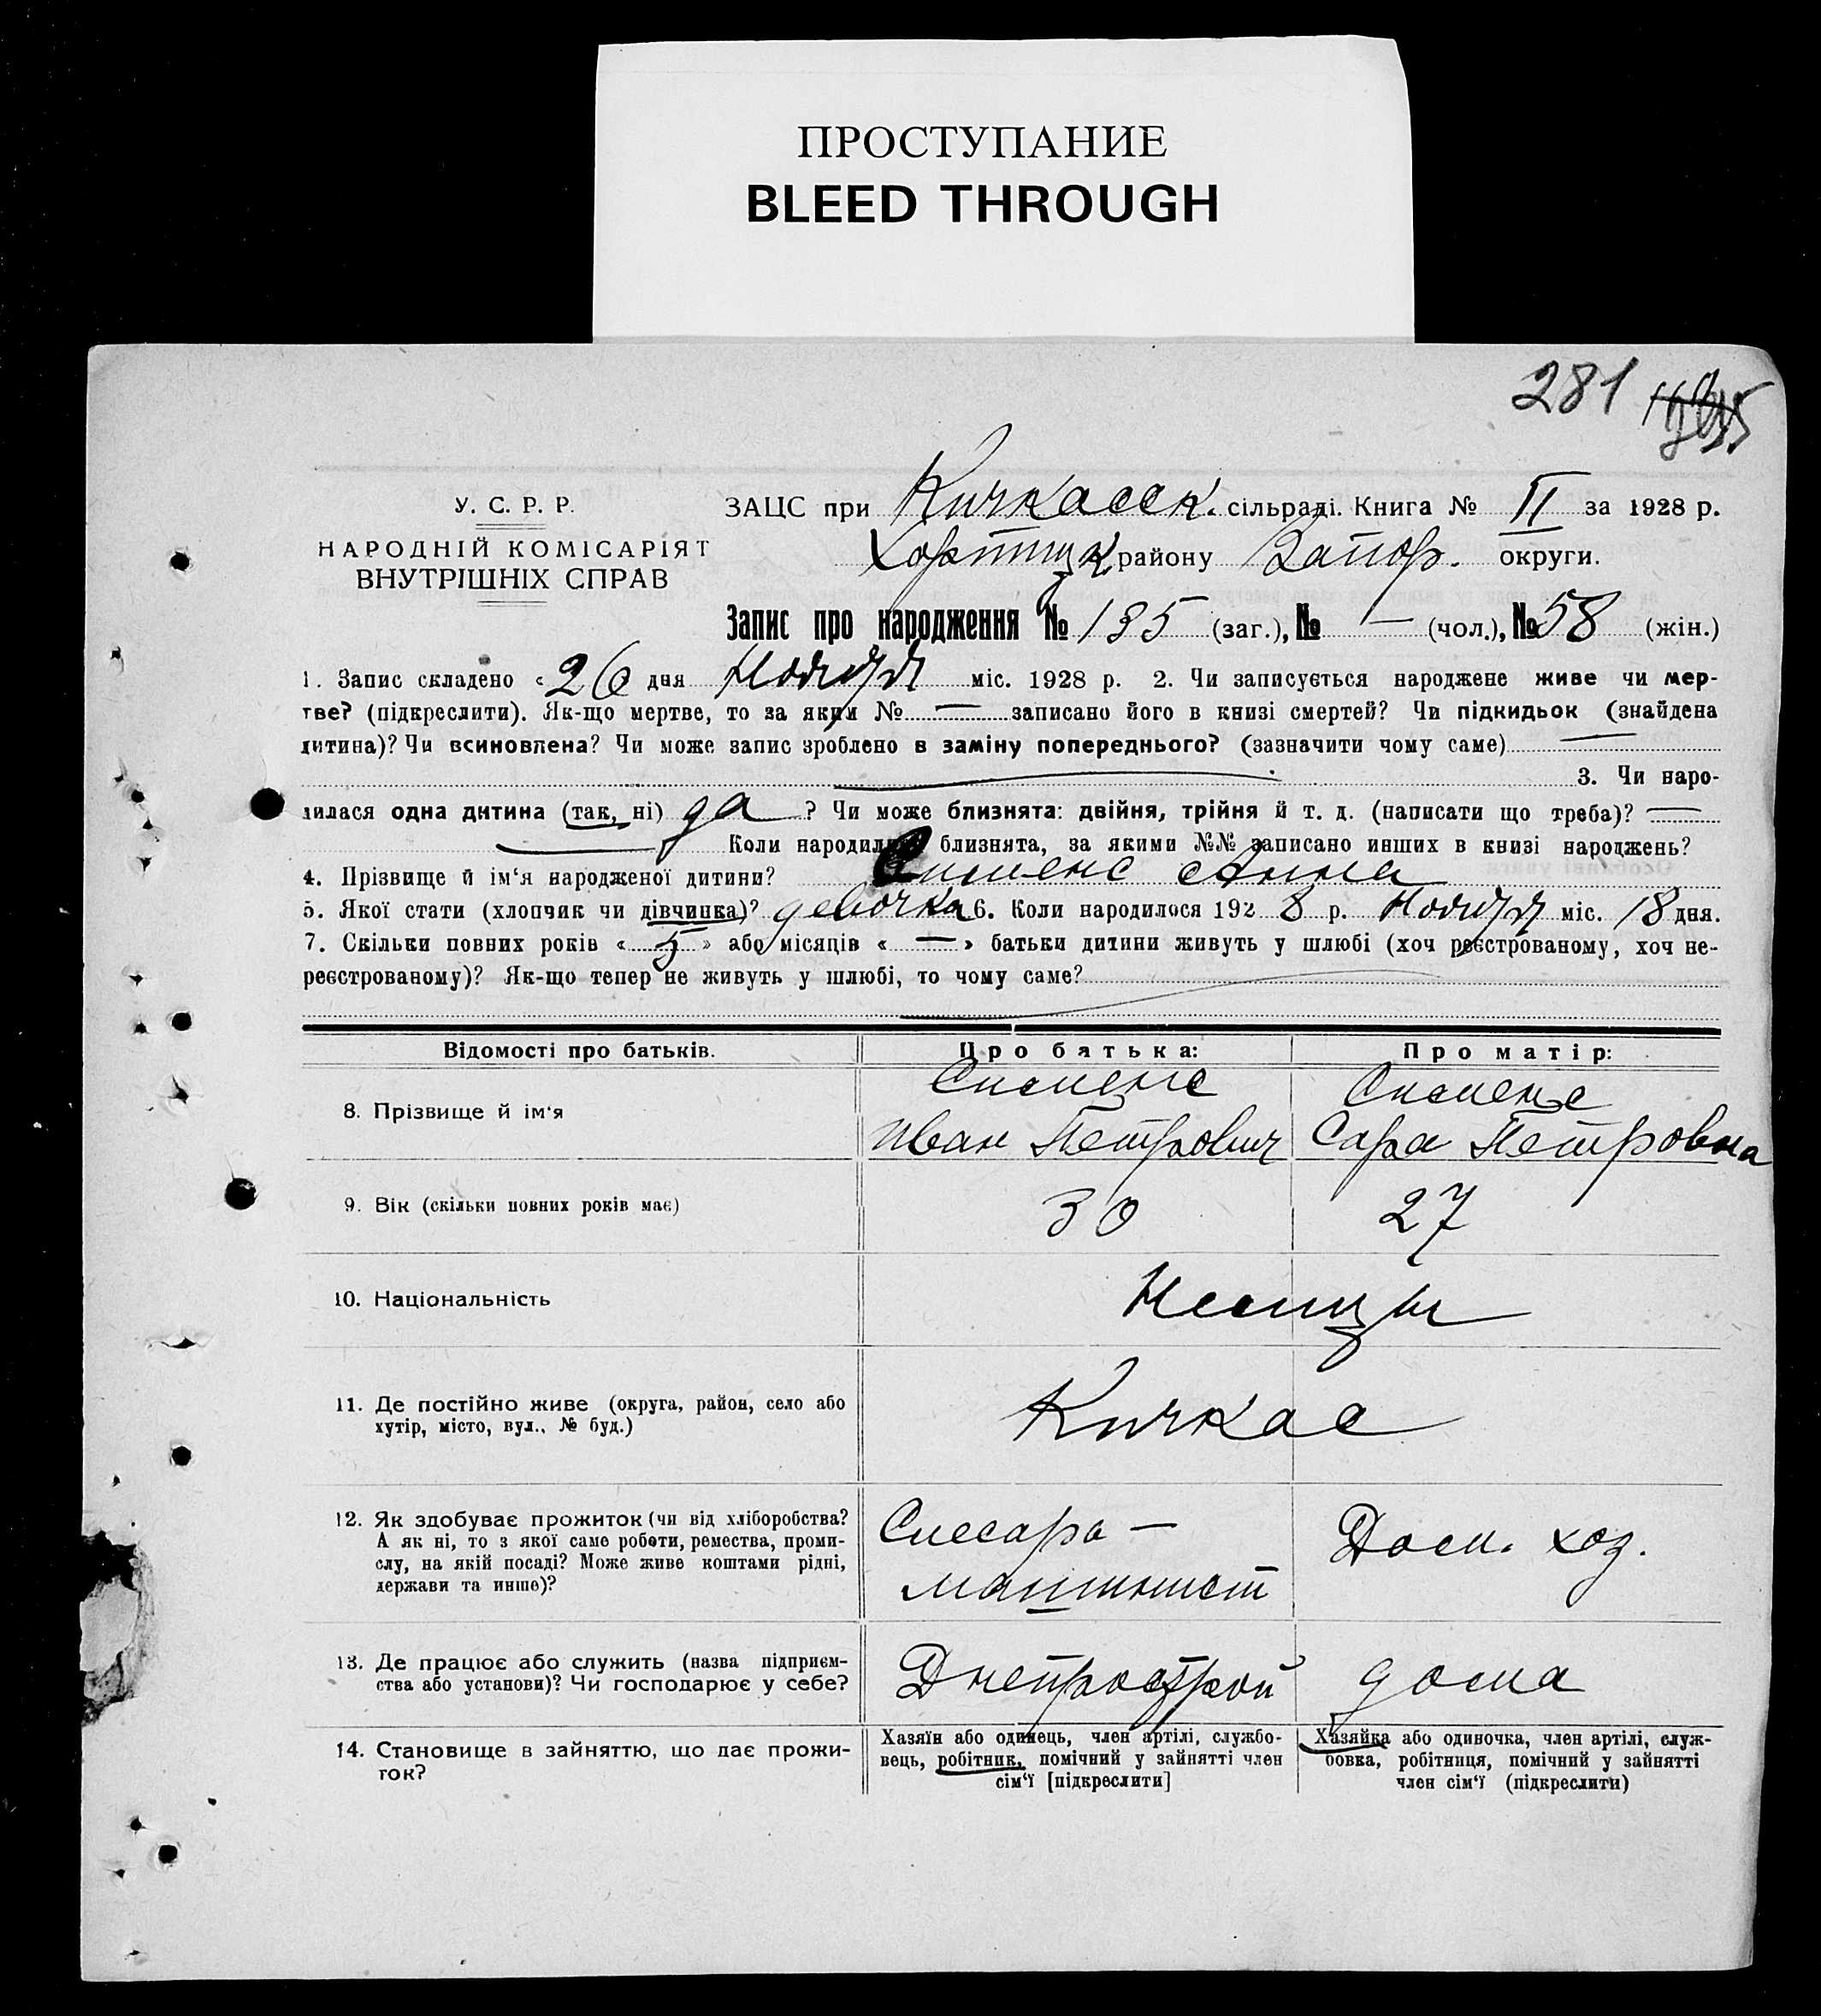 ПРОСТУПАНИЕ
BLEED THROUGH
281
У. С. Р. Р.
НАРОДНІЙ КОМІСАРІЯТ
ВНУТРІШНІХ СПРАВ
ЗАЦС при Кичкасск. сільраді. Книга № II за 1928 р.
Хортицк. району Запор. округи.
Запис про народження № 135 (заг.), № — (чол.), № 58 (жін.)
1. Запис складено « 26 дня Ноября міс. 1928 р. 2. Чи записується народжене живе чи мер-
тве? (підкреслити). Як-що мертве, то за яким № — записано його в книзі смертей? Чи підкидьок (знайдена
дитина)? Чи всиновлена? Чи може запис зроблено в заміну попереднього? (зазначити чому саме) —
— 3. Чи наро-
дилася одна дитина (так, ні) да ? Чи може близнята: двійня, трійня й т. д. (написати що треба)? —
— Коли народились близнята, за якими №№ записано инших в книзі народжень?
4. Прізвище й ім‘я народженої дитини? Сименс Анна
5. Якої стати (хлопчик чи дівчинка)? девочка 6. Коли народилося 192 8 р. Ноября міс. 18 дня.
7. Скільки повних років « 5 » або місяців « — » батьки дитини живуть у шлюбі (хоч реєстрованому, хоч не-
реєстрованому)? Як-що тепер не живуть у шлюбі, то чому саме? —
Відомості про батьків.
Про батька:
Про матір:
8. Прізвище й ім‘я
Сименс
Иван Петрович
Сименс
Сара Петровна
9. Вік (скільки повних років має)
30
27
10. Національність
Немцы
11. Де постійно живе (округа, район, село або
хутір, місто, вул., № буд.)
Кичкас
12. Як здобуває прожиток (чи від хліборобства?
А як ні, то з якої саме роботи, ремества, проми-
слу, на якій посаді? Може живе коштами рідні,
держави та инше)?
Слесарь —
машинист
Дом. хоз.
13. Де працює або служить (назва підприєм-
ства або установи)? Чи господарює у себе?
Днепрострой
дома
14. Становище в зайняттю, що дає прожи-
ток?
Хазяїн або одинець, член артілі, службо-
вець, робітник, помічний у зайнятті член
сім‘ї [підкреслити]
Хазяйка або одиночка, член артілі, служ-
бовка, робітниця, помічний у зайнятті
член сім‘ї (підкреслити)